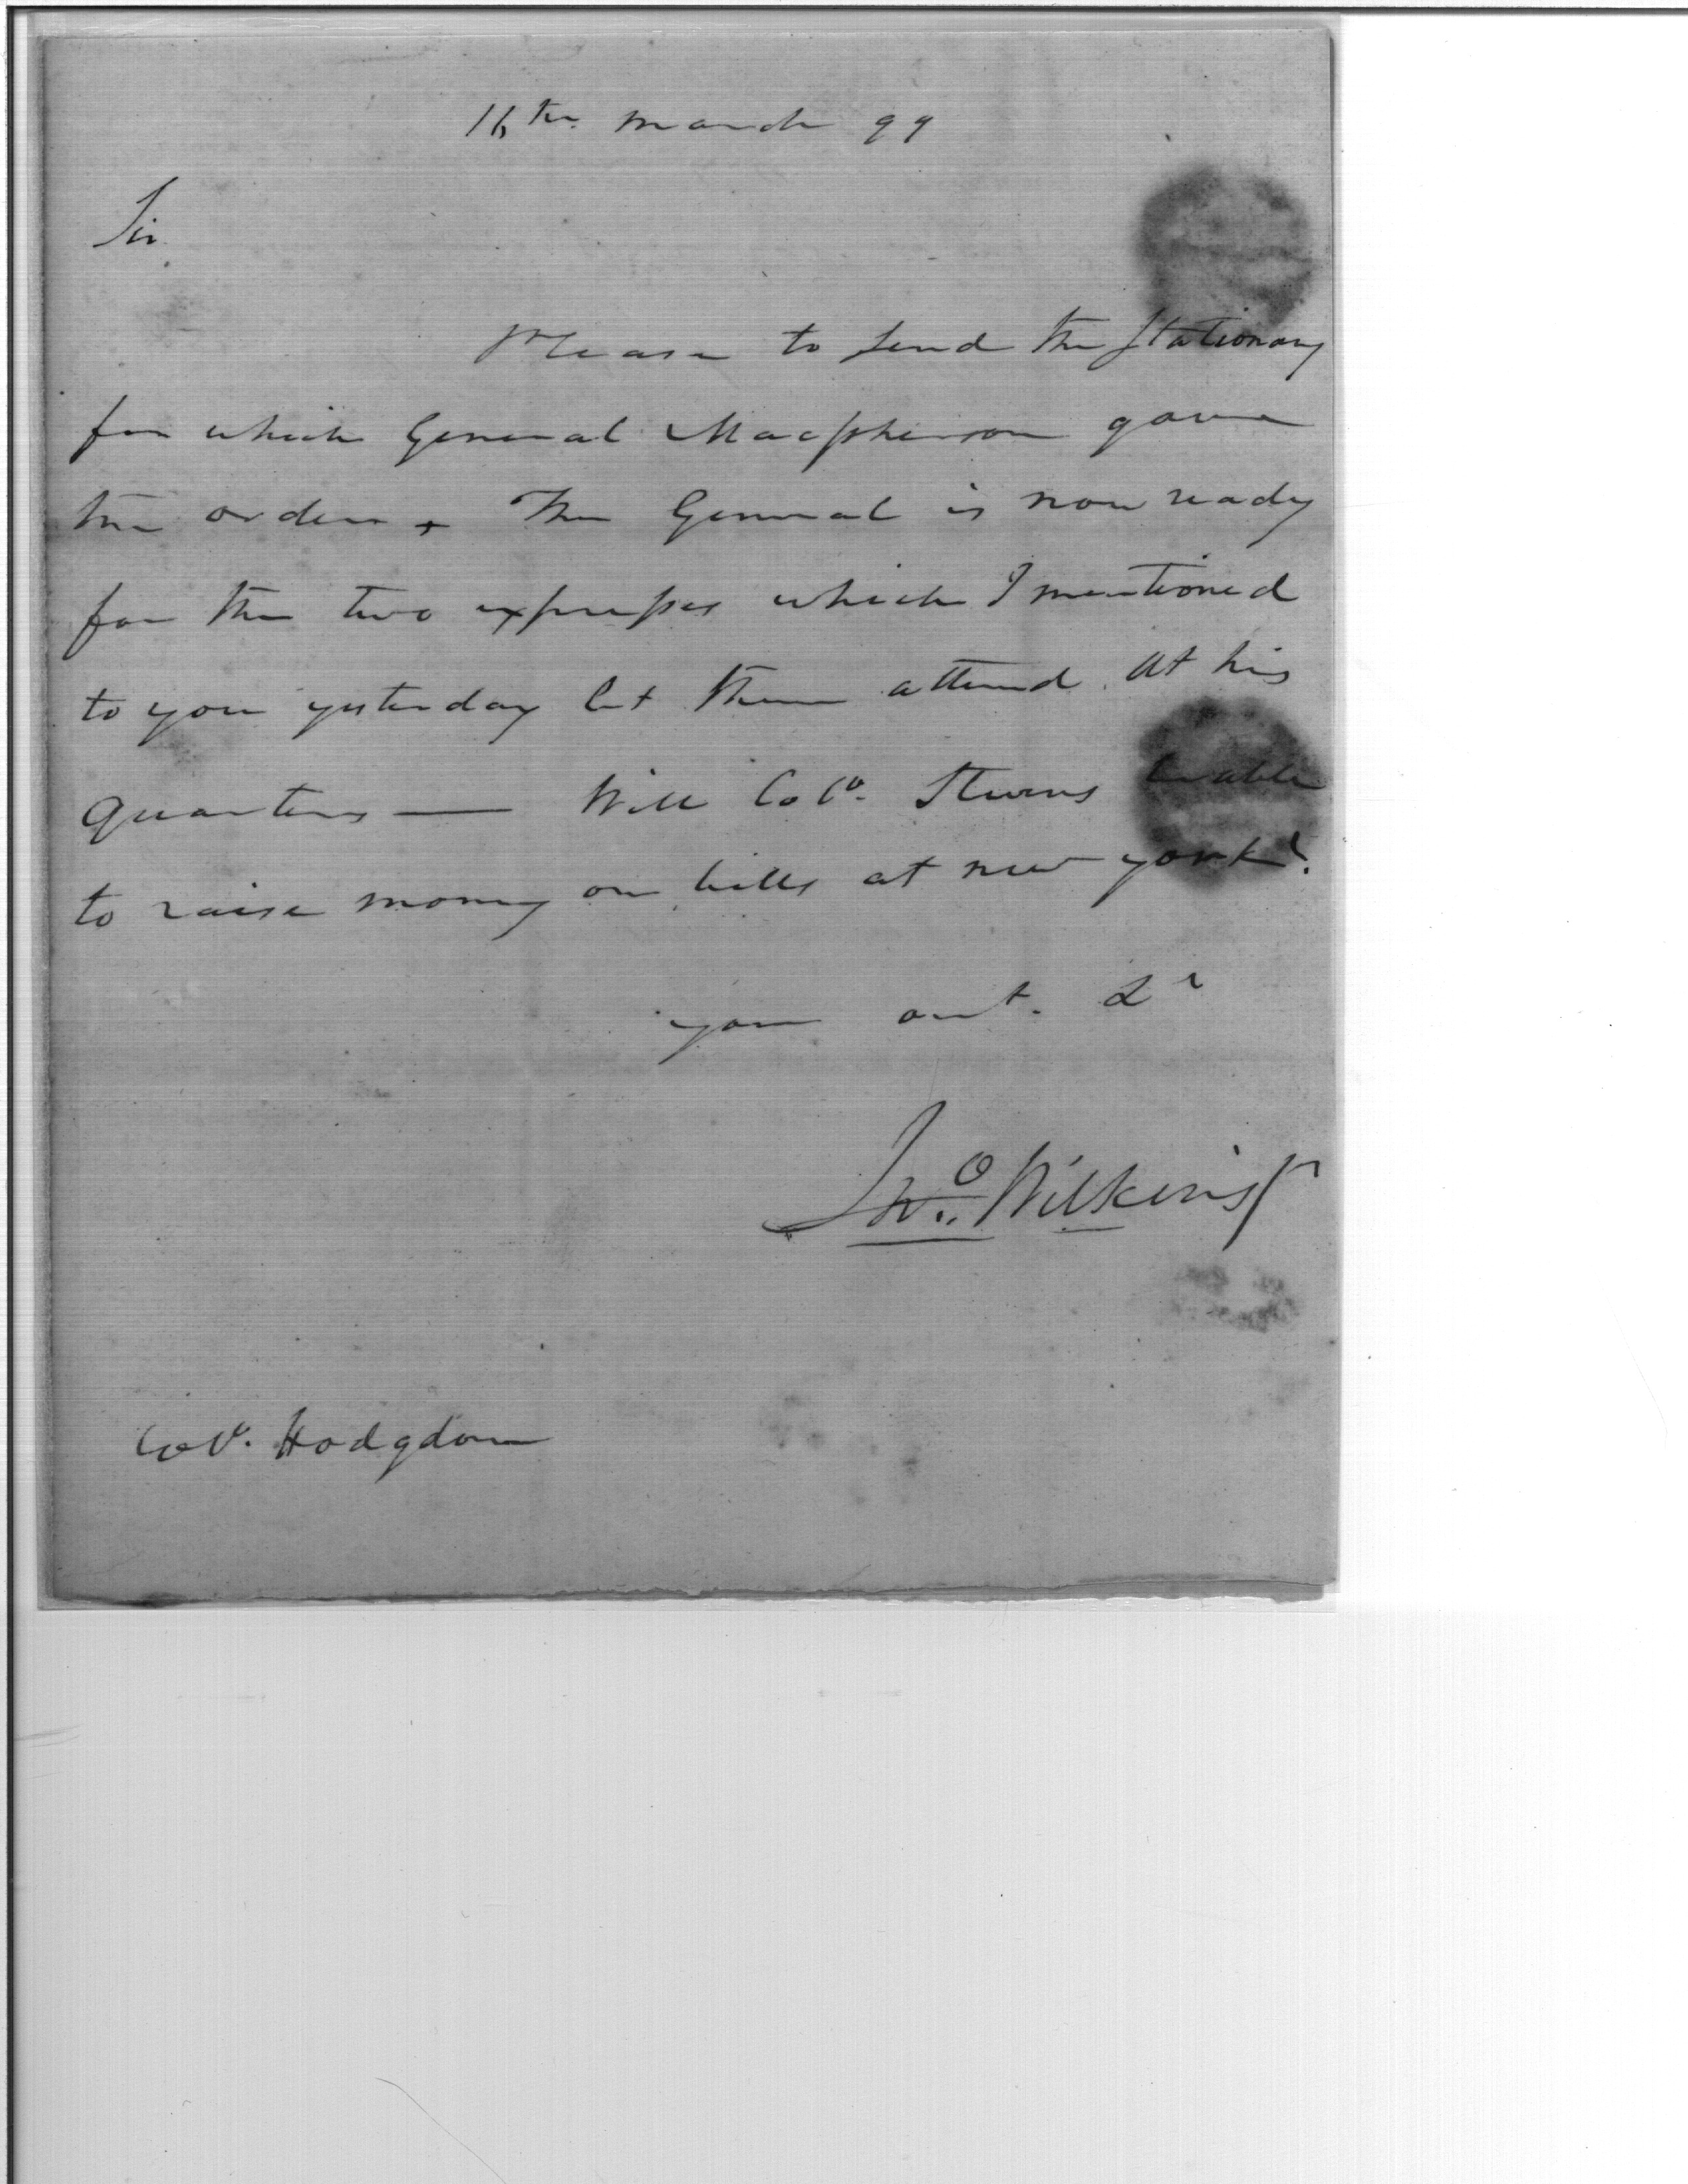 16th March 99
Sir
Please to send the Stationary
for which General Macpherson gave
the order + The General is now ready
for the two expresses which I mentioned
to you yesterday let them attend at his
Quarters — Will Colo. Stevens be able
to raise money on bills at new york?
your
Jno. Wilkins Jr
Col. Hodgdon